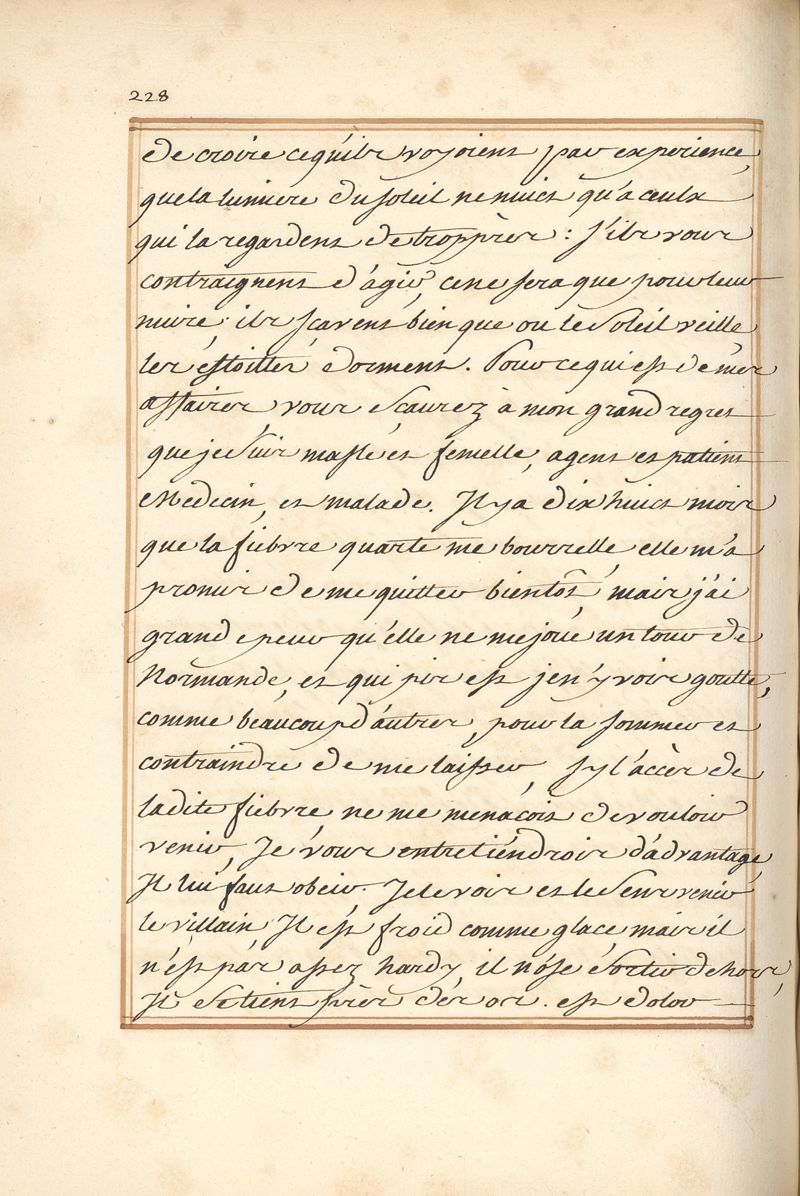 228
de croire ce qu'ils voyoient par experience,
que la lumiere du soleil ne nuict qu'a ceulx
qui la regardent de trop près : s'ils vous
contraignent d'ágir, ce ne sera que pour leur
nuire, ils sçavent bien que ou le Soleil veille
les éstoilles dorment. Pour ce qui est de mes
affaires vous scaurez à mon grand regret
que je suis masle et femelle, agent et patient
Medecin, et malade. Il y a dix huict mois
que la fiebvre quarte me bourrelle, elle m'a
promis de me quitter bientost, mais j'ai
grande peur qu'elle ne me joüe un tour de
Normande, et qui pis est je n'y vois goutte,
comme beaucoup d'autres, pour la sommer et
contraindre de me laisser, sy l'accès de
ladite fiebvre ne me menaçoit de vouloir
venir, Je vous entretiendrois d'advantage,
Il lui faut obeir. Je le vois et le sens venir
le villain Il est froid comme glace mais il
n'est pas assez hardy, il n'ose sortir dehors,
Il se tient près des os. et dolor